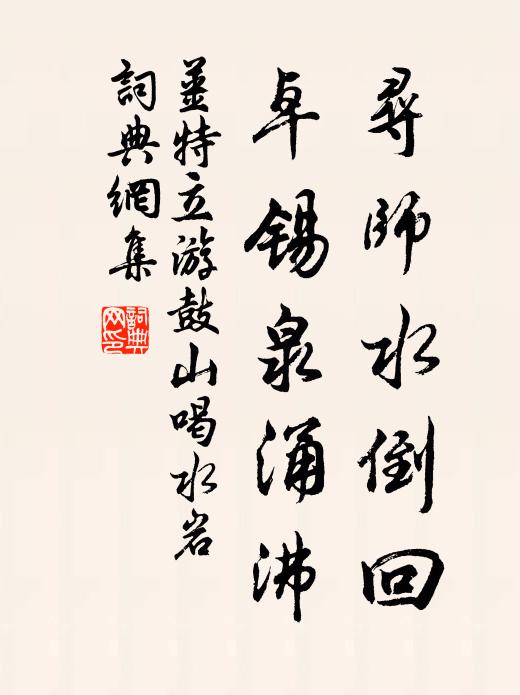 尋師水倒回
卓錫泉涌沸
薑特立游鼓山喝水岩
詞典網集
詞典网印